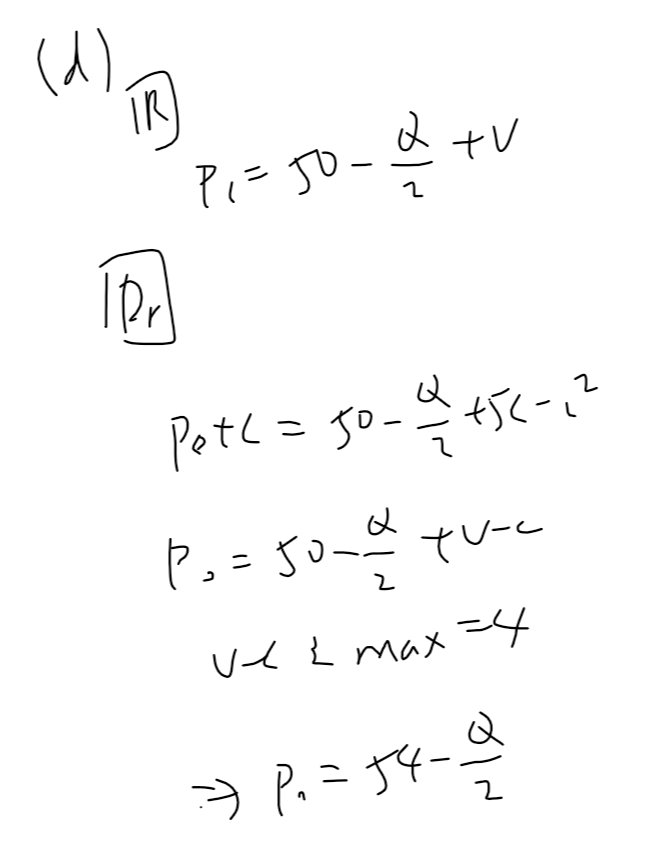 (d)
IR
P₁ = 50 - Q/2 + V
IDr
P₀ + C = 50 - Q/2 + 5C - C²
P₀ = 50 - Q/2 + V - C
V - C max = 4
⇒ P₀ = 54 - Q/2